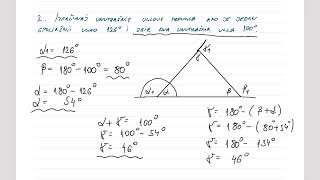 2. Izračunaj unutrašnje uglove trougla ako je jedan
spoljašnji ugao 126° i zbir dva unutrašnja ugla 100°.
α1 = 126°
β = 180° - 100° = 80°
α = 180° - 126°
α = 54°
γ γ1
α1 α β β1
α + γ = 100°
γ = 100° - 54°
γ = 46°
γ = 180° - (β + α)
γ = 180° - (80° + 54°)
γ = 180° - 134°
γ = 46°